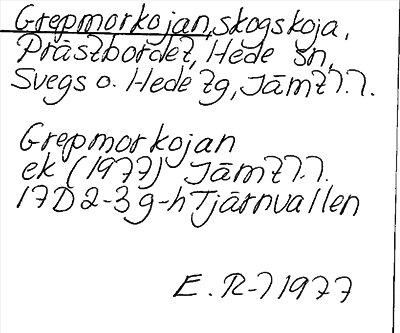 Grepmorkojan, skogskoja,
Prästbordet, Hede sn,
Svegs o. Hede tg, Jämtl.
Grepmorkojan
ek (1977) Jämtl.
17D 2-3 g-h Tjärnvallen
E. R-l 1977